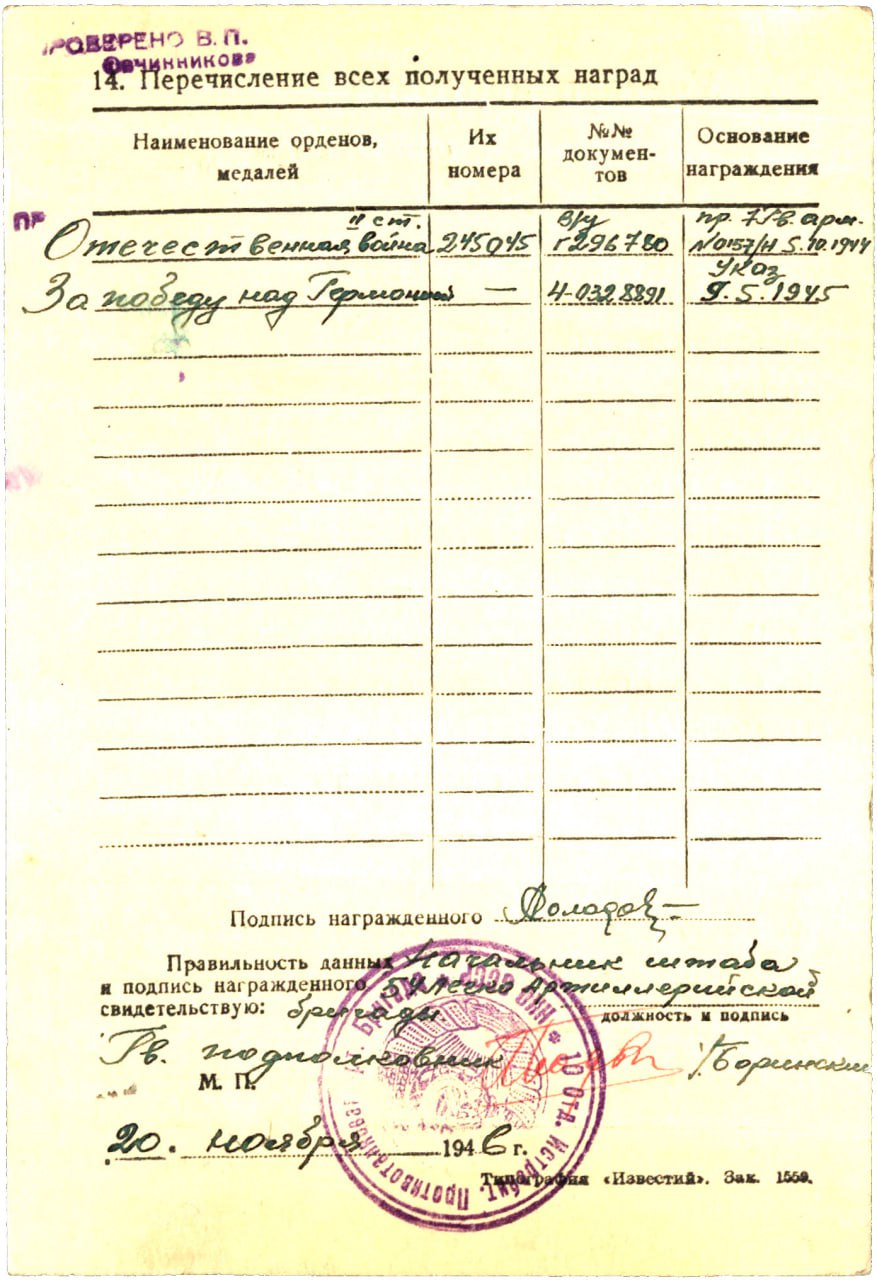 ПРОВЕРЕНО В. П.
Овчинникова
14. Перечисление всех полученных наград
Наименование орденов, медалей
Их номера
№№ документов
Основание награждения
ПР
Отечественная война II ст. 245045 в/у Г296780 пр. 7 Гв. арм. №0157/Н 5.10.1944
За победу над Германией — Ч-0328891 Указ 9.5.1945
Подпись награжденного
Правильность данных Начальник штаба
и подпись награжденного Артиллерийской
свидетельствую: бригады
должность и подпись
Гв. подполковник /Боринский
М. П.
20. ноября 1946 г.
Типография «Известий». Зак. 1559.
10 Отд. Истребит. Противотанковая Арт. Бригада * СССР